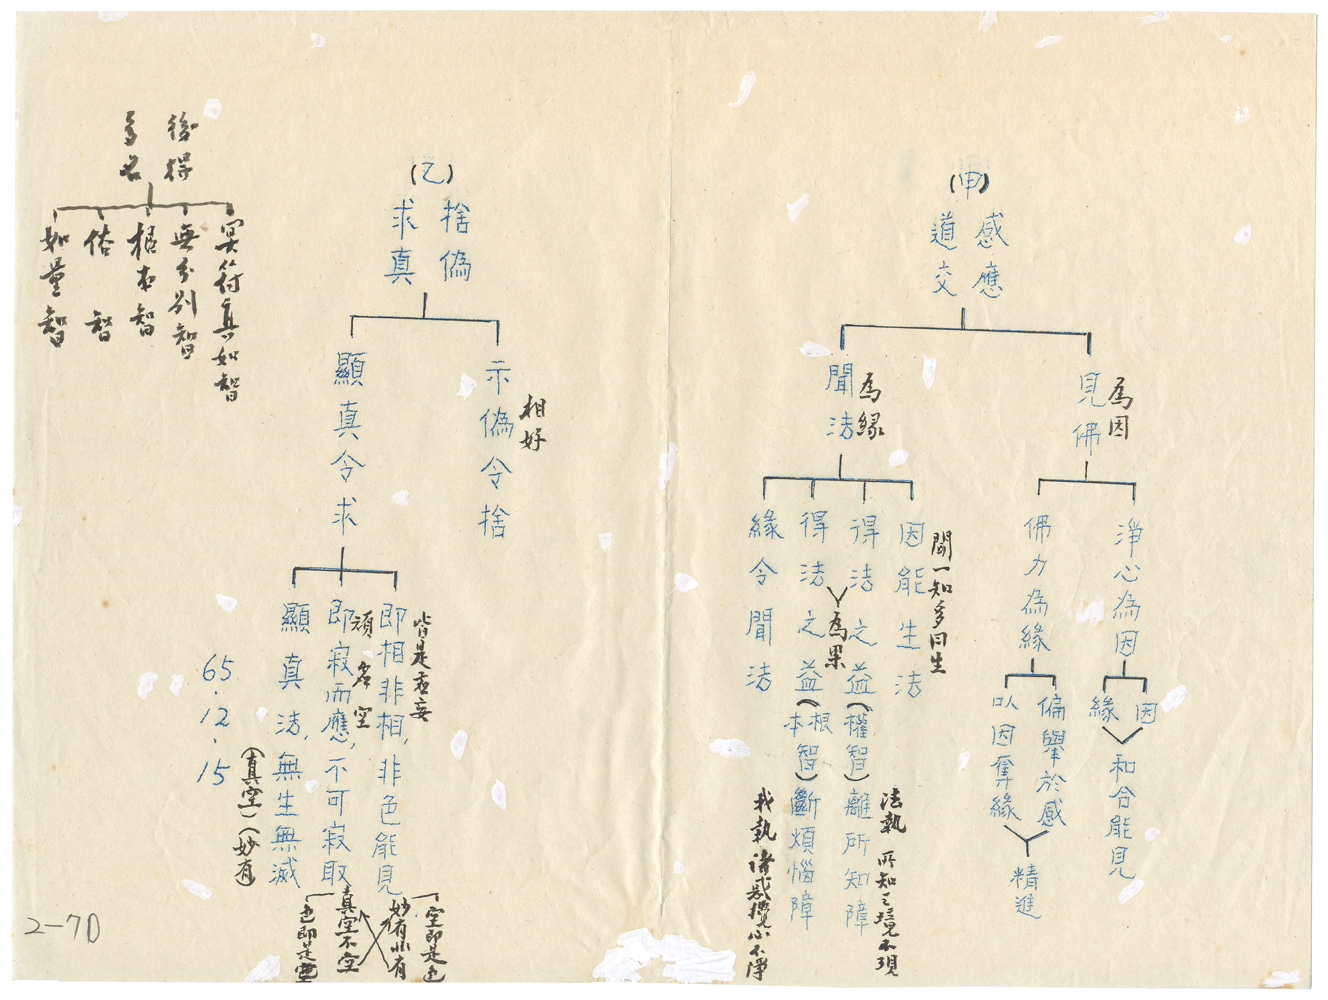 (甲)
感應
道交
見佛
為因
淨心為因
因
緣
和合能見
佛力為緣
偏舉於感
以因奪緣
精進
聞法
為緣
因能生法
聞一知多曰生
得法之益(權智)離所知障
法執 所知之境不現
為果
得法之益(根本智)斷煩惱障
我執 諸惑擾心不淨
緣令聞法
(乙)
捨偽
求真
示偽令捨
相好
顯真令求
即相非相,非色能見
皆是虛妄
空即是色
妙有非有
即寂而應,不可寂取
頑名空
真空不空
色即是空
顯真法,無生無滅
(真空)(妙有)
65.12.15
後得
多名
冥符真如智
無分別智
根本智
俗智
如量智
2-7D